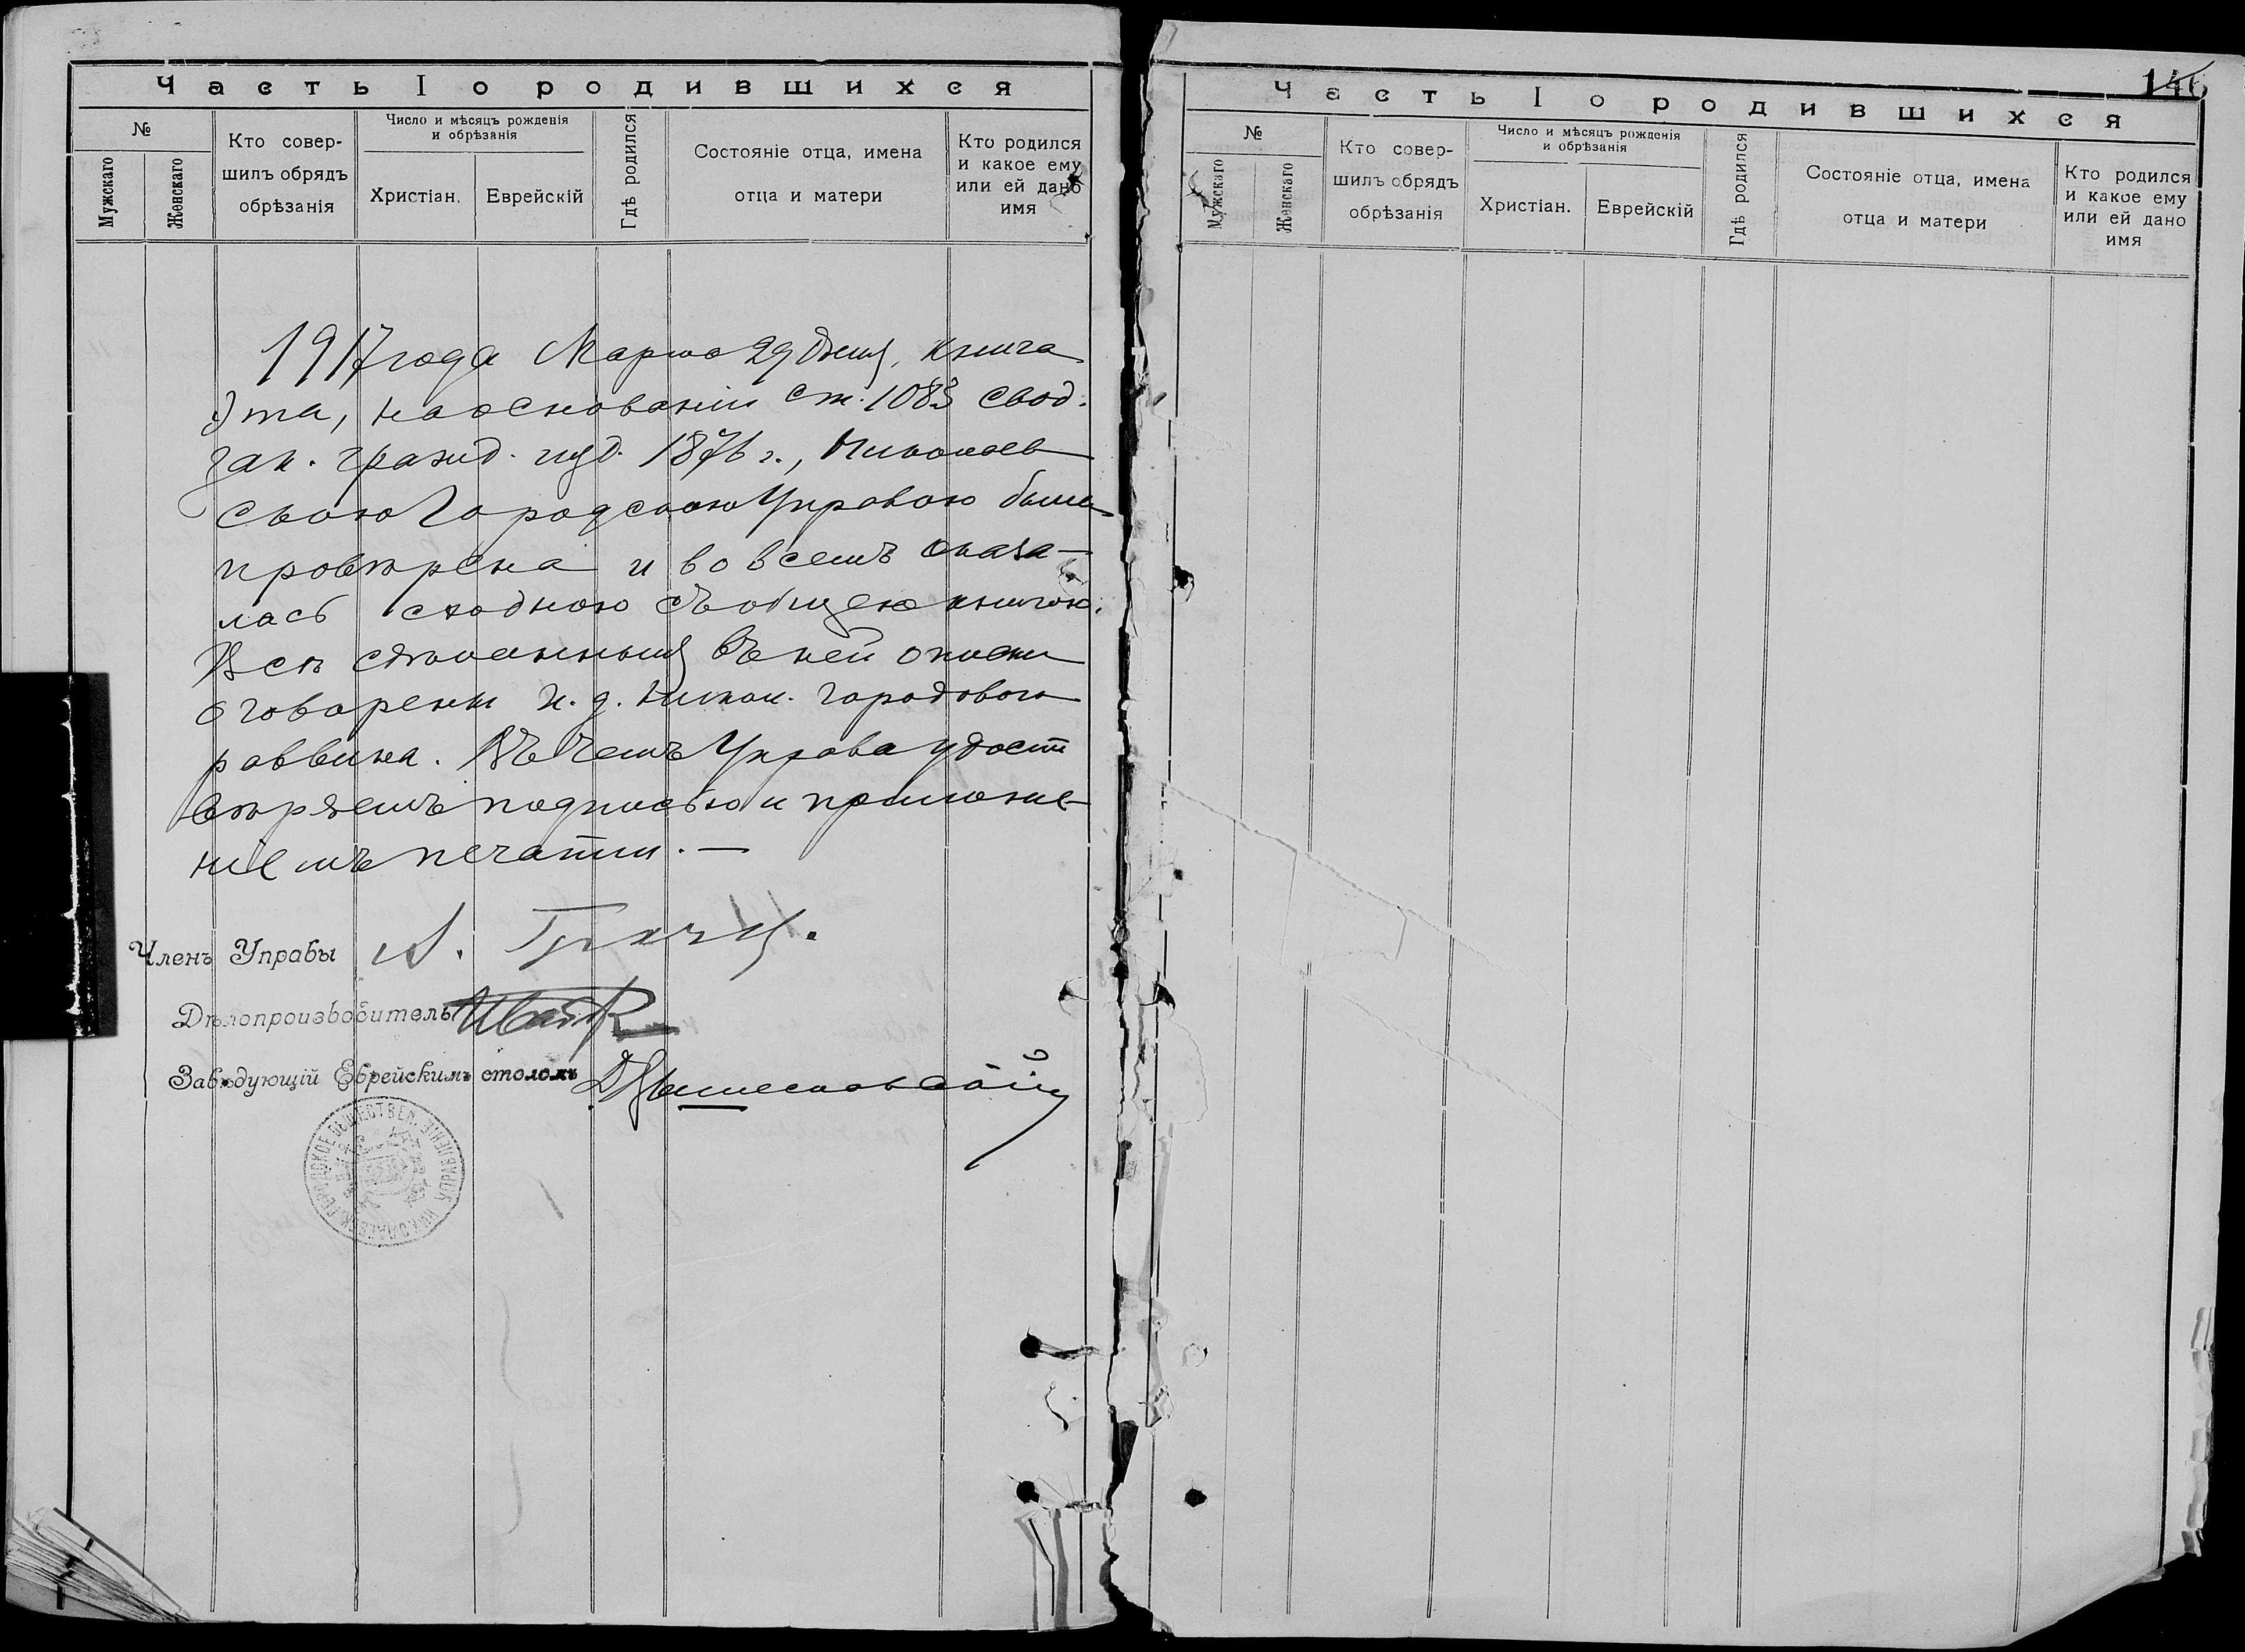 Часть I о родившихся
№
Мужскаго
Женскаго
Кто совер-
шилъ обрядъ
обрѣзанія
Число и мѣсяцъ рожденія
и обрѣзанія
Христіан.
Еврейскій
Гдѣ родился
Состояніе отца, имена
отца и матери
Кто родился
и какое ему
или ей дано
имя
1917 года Марта 29 дня, книга
эта, на основаніи ст. 1083 свод.
зак. гражд. изд. 1876 г., Николаев
скою Городскою Управою была
провѣрена и во всемъ оказа-
лась сходною съ общею книгою.
Всѣ сдѣланныя въ ней описки
оговорены И. д. Никол. городового
раввина. Въ чемъ Управа удост
вѣряетъ подписью и приложе-
ніемъ печати. —
Членъ Управы
Дѣлопроизводитель
Завѣдующій Еврейскимъ столомъ
НИКОЛАЕВСК. ГОРОДСКОЕ ОБЩЕСТВЕН. УПРАВЛЕНІЕ
146
Часть I о родившихся
№
Мужскаго
Женскаго
Кто совер-
шилъ обрядъ
обрѣзанія
Число и мѣсяцъ рожденія
и обрѣзанія
Христіан.
Еврейскій
Гдѣ родился
Состояніе отца, имена
отца и матери
Кто родился
и какое ему
или ей дано
имя